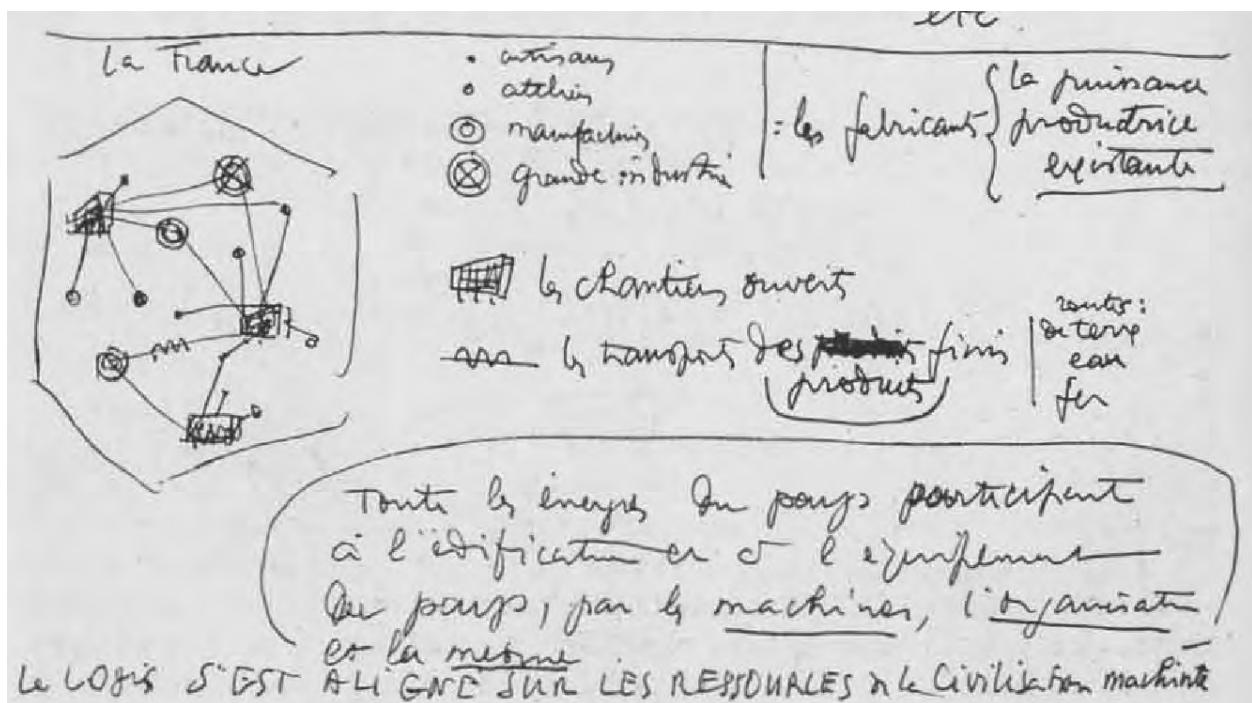 etc
La France
• artisans
• ateliers
manufactures
grande industrie
= les fabricants
la puissance
productrice
existante
les chantiers ouverts
les transports des finis
produits
routes :
de terre
eau
fer
Toute les énergies du pays participent
à l'édification et à l'équipement
du pays, par les machines, l'organisation
et la mesure
Le LOGIS S'EST ALIGNÉ SUR LES RESSOURCES de la Civilisation machiniste